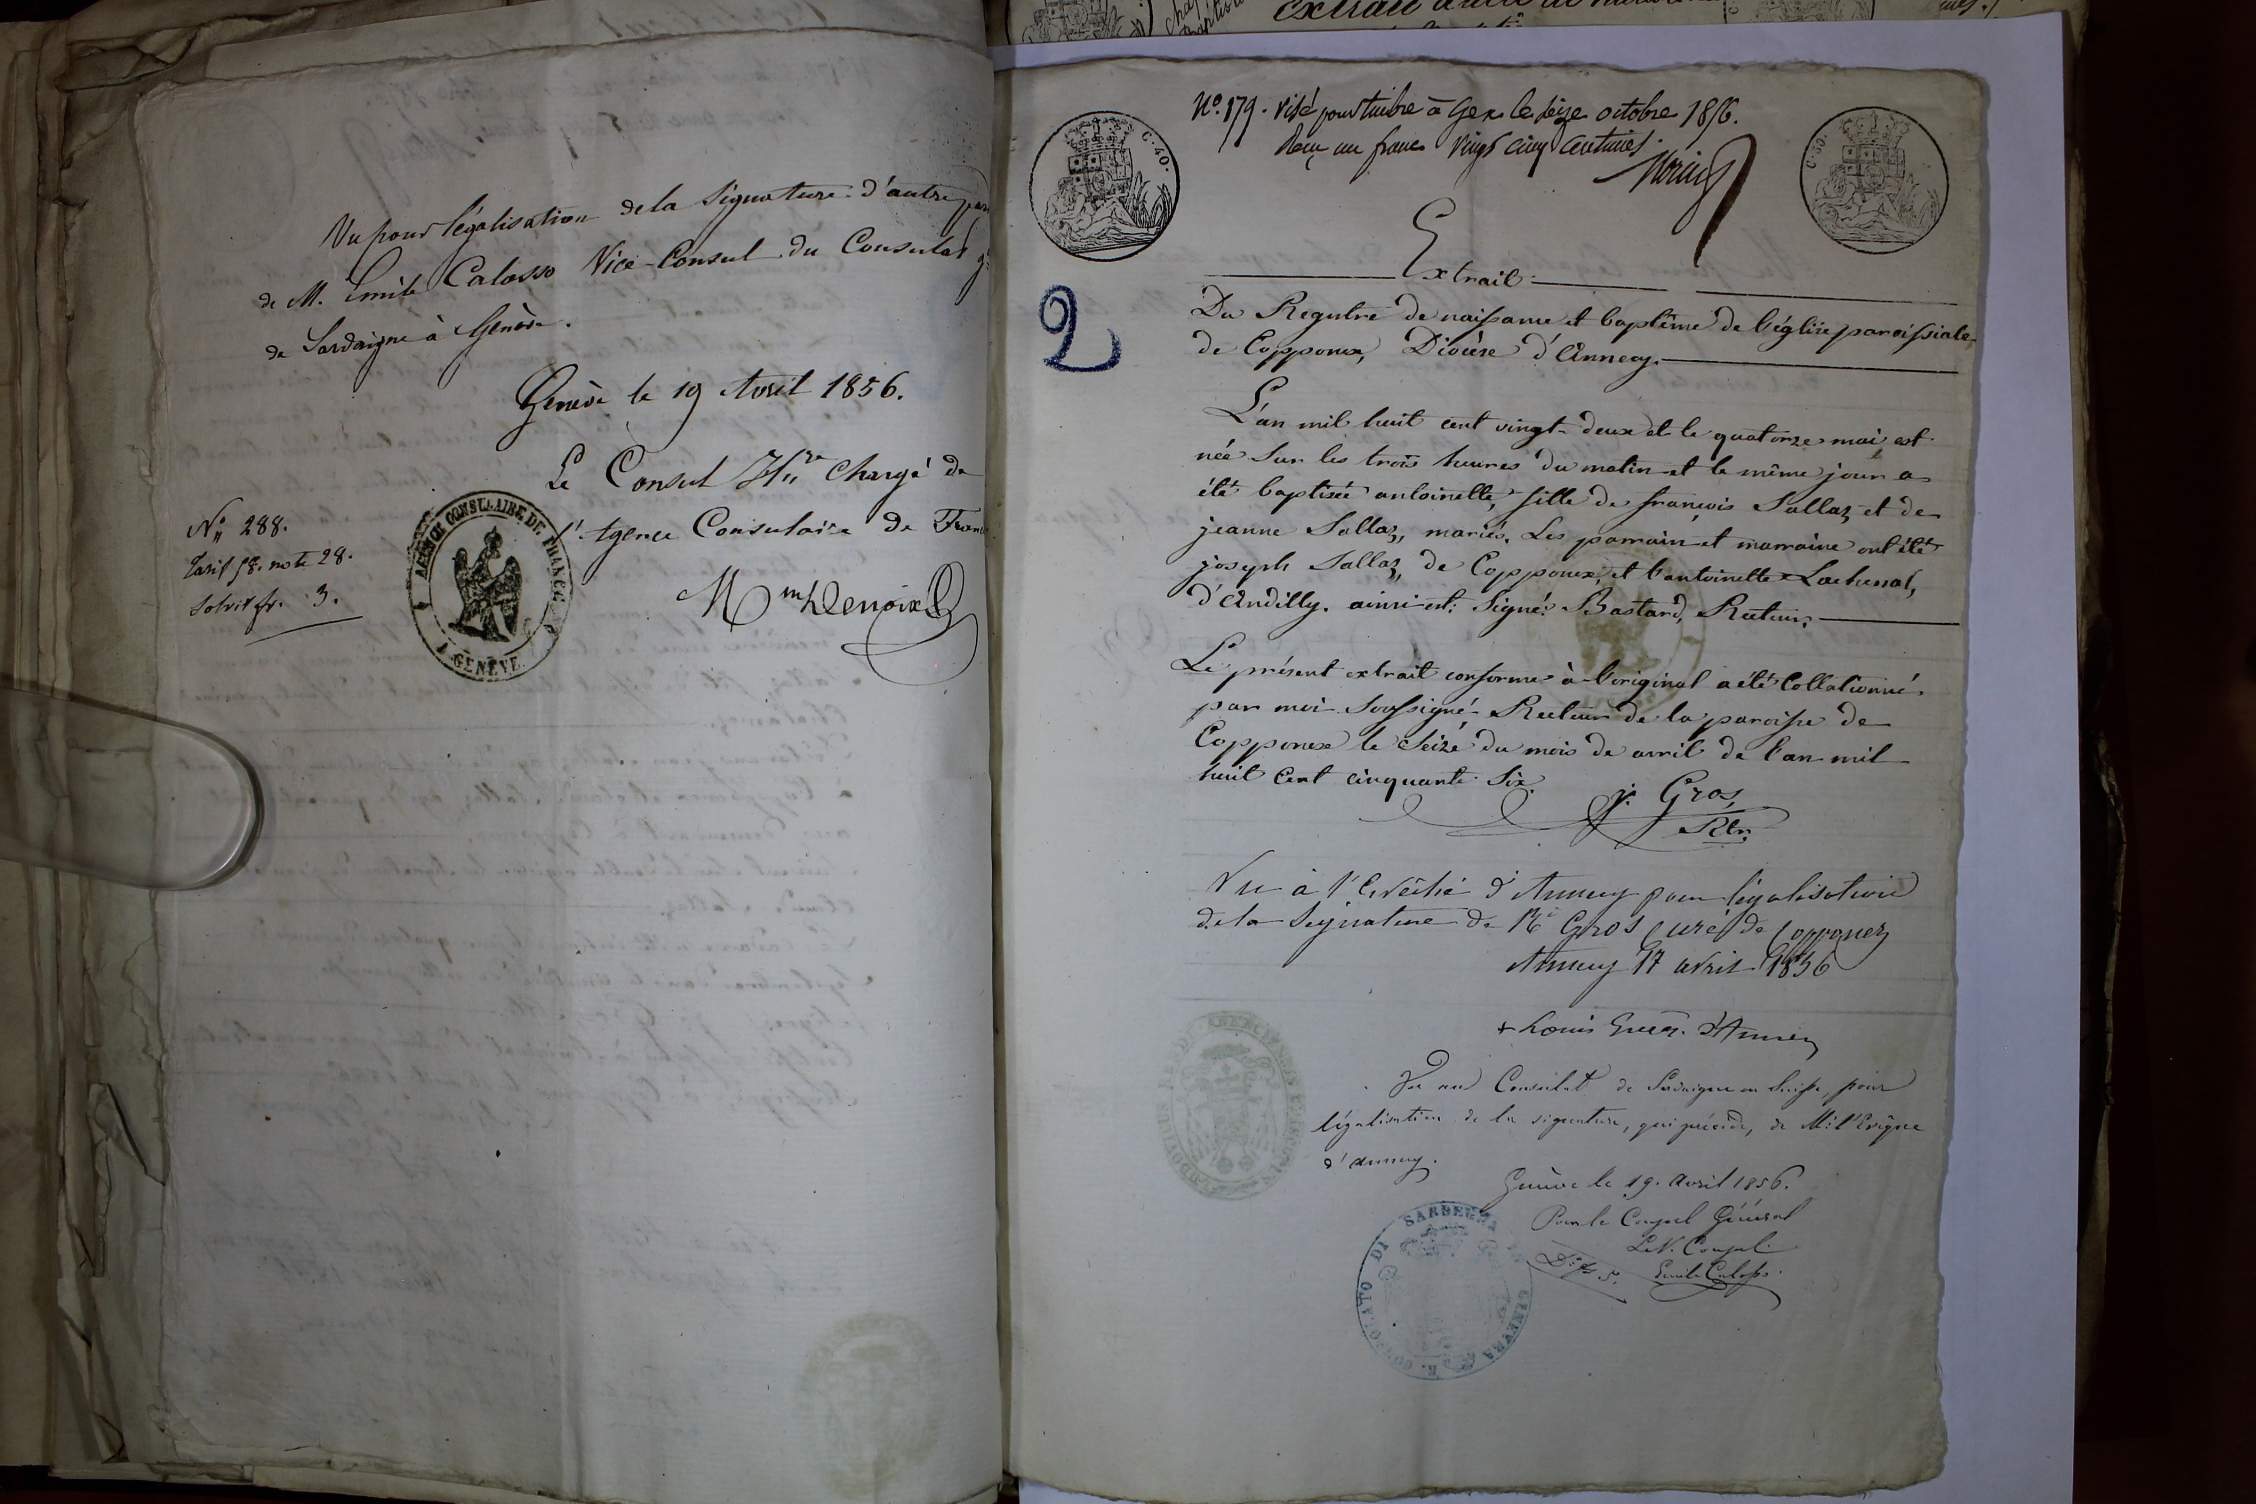 Vu pour légalisation de la signature d'autre part
de M. Emile Calosso Vice-Consul du Consulat gl
de Sardaigne à Genève.
Genève le 19 Avril 1856.
Le Consul Hre chargé de
l'Agence Consulaire de France
N° 288.
Tarif 58. note 28.
Solvit fr. 3.
AGENCE CONSULAIRE DE FRANCE
A GENÈVE
N° 179. Visé pour timbre à Gex le seize octobre 1856.
Reçu un franc vingt cinq centimes.
C. 40.
C. 50.
Extrait
2
Du Registre de naissance et baptême de l'église paroissiale
de Copponex, Diocèse d'Annecy.
L'an mil huit cent vingt-deux et le quatorze mai, est
née sur les trois heures du matin et le même jour a
été baptisée antoinette, fille de françois Sallaz, et de
jeanne Sallaz, mariés. Les parrain et marraine ont été
joseph Sallaz, de Copponex, et l'antoinette Lachenal,
d'Andilly. ainsi est: Signé: Bastard, Recteur.
Le présent extrait conforme à l'original a été Collationné
par moi soussigné Recteur de la paroisse de
Copponex le seize du mois de avril de l'an mil
huit cent cinquante six.
j. Gros,
Rtr.
Vu à l'Evêché d'Annecy pour légalisation
de la signature de Rd Gros curé de Copponex
Annecy 17 avril 1856
+ Louis Evêq. d'Annecy
Vu au Consulat de Sardaigne en Suisse pour
légalisation de la signature, qui précède, de M. l'Evêque
d'Annecy.
Genève le 19. Avril 1856.
Pour le Consul Général
Le V. Consul
Emile Calosso.
CONSOLATO DI SARDEGNA
GINEVRA